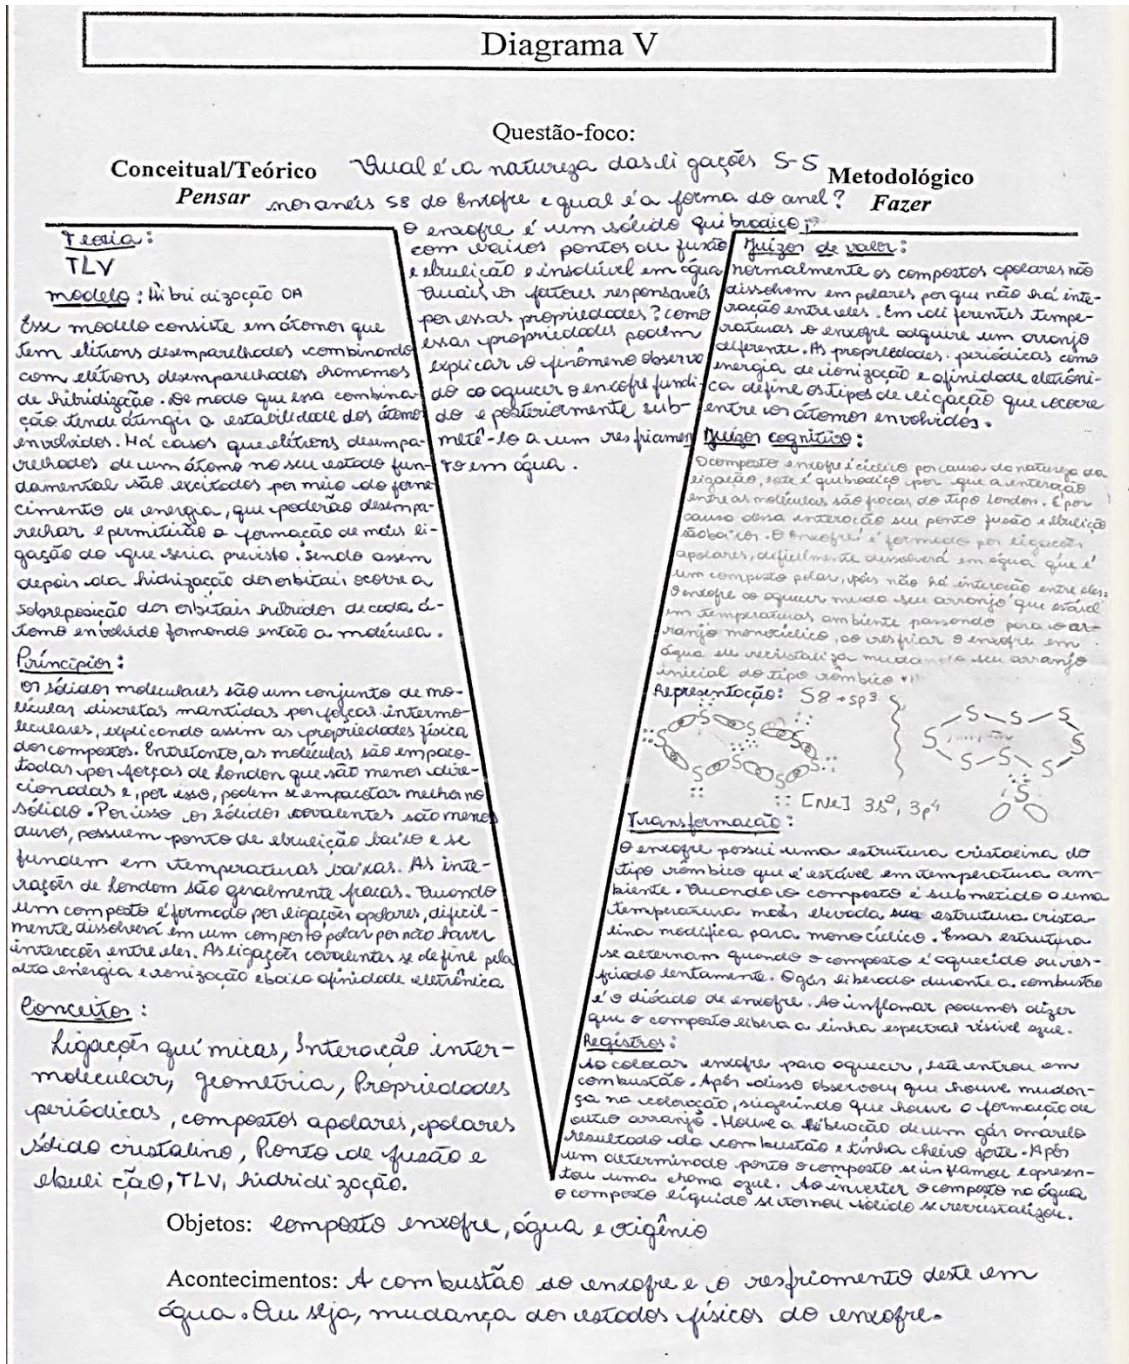 Diagrama V
Questão-foco:
Conceitual/Teórico
Pensar
Metodológico
Fazer
Qual é a natureza das ligações S-S
nos anéis S8 do Enxofre e qual é a forma do anel?
O enxofre é um sólido quebradiço,
com baixos pontos de fusão
e ebulição e insolúvel em água
Quais os fatores responsavéis
por essas propriedades? como
essas propriedades podem
explicar o fenômeno observa
do ao aquecer o enxofre fundi-
do e posteriormente sub-
metê-lo a um resfriamen
to em água.
Teoria:
TLV
modelo: Hibridização OA
Esse modelo consiste em átomos que
tem elétrons desemparelhados combinando
com elétrons desemparelhados chamamos
de hibridização. De modo que essa combina-
ção tende atingir a estabilidade dos átomos
envolvidos. Há casos que elétrons desempa-
relhados de um átomo no seu estado fun-
damental são excitados por meio do forne
cimento de energia, que poderão desempa-
relhar e permitirão a formação de mais li-
gação do que seria previsto. Sendo assim
depois da hidrização dos orbitais ocorre a
sobreposição dos orbitais hibridos de cada á-
tomo envolvido formando então a molécula.
Príncipios:
Os sólidos moleculares são um conjunto de mo-
léculas discretas mantidas por forças intermo-
leculares, explicando assim as propriedades física
dos compostos. Entretanto, as moléculas são empaco-
tadas por forças de London que são menos dire-
cionadas e, por isso, podem se empacotar melhor no
sólido. Por isso os sólidos covalentes são menos
duros, possuem ponto de ebulição baixo e se
fundem em temperaturas baixas. As inte-
rações de London são geralmente fracas. Quando
um composto é formado por ligações apolares, dificil-
mente dissolverá em um composto polar por não haver
interação entre eles. As ligações covalentes se define pela
alta energia e ionização e baixa afinidade eletrônica
Conceitos:
Ligações químicas, Interação inter-
molecular, geometria, Propriedades
periódicas, compostos apolares, polares
sólido cristalino, Ponto de fusão e
ebulição, TLV, hidridização.
Juízos de valor:
normalmente os compostos apolares não
dissolvem em polares por que não há inte-
ração entre eles. Em diferentes tempe-
raturas o enxofre adquire um arranjo
diferente. As propriedades periódicas como
energia de ionização e afinidade eletrôni-
ca define os tipos de ligação que ocorre
entre os átomos envolvidos.
Juízos cognitivo:
O composto enxofre é cíclico por causa da natureza da
ligação, este é quibradiço por que a interação
entre as moléculas são fracas do tipo London. É por
causa dessa interação seu ponto fusão e ebulição
são baixos. O Enxofre é formado por ligações
apolares, dificilmente dissolverá em água que é
um composto polar, pois não há interação entre eles.
O enxofre ao aquecer muda seu arranjo que estável
em temperaturas ambiente passando para o ar-
ranjo monocíclico, ao resfriar o enxofre em
água ele recristaliza mudando seu arranjo
inicial do tipo rômbico
Representação: S8 → sp³
S S S S S S S S
S S S S S S S S
[Ne] 3s², 3p⁴
Transformação:
O enxofre possui uma estrutura cristalina do
tipo rômbico que é estável em temperatura am-
biente. Quando o composto é submetido a uma
temperatura mais elevada sua estrutura crista-
lina modifica para monocíclico. Essas estrutura
se alternam quando o composto é aquecido ou res-
friado lentamente. O gás liberado durante a combustão
é o dióxido de enxofre. Ao inflamar podemos dizer
que o composto libera a linha espectral visível azue.
Registros:
Ao colocar enxofre para aquecer, este entrou em
combustão. Após disso observou que houve mudan-
ça na coloração, sugerindo que houve a formação de
outro arranjo. Houve a liberação de um gás amarelo
resultado da combustão e tinha cheiro forte. Após
um determinado ponto o composto se inflamou e apresen-
tou uma chama azue. Ao inverter o composto na água
o composto líquido se tornou sólido se recristalizou.
Objetos: composto enxofre, água e oxigênio
Acontecimentos: A combustão do enxofre e o resfriamento deste em
água. Ou seja, mudança dos estados físicos do enxofre.